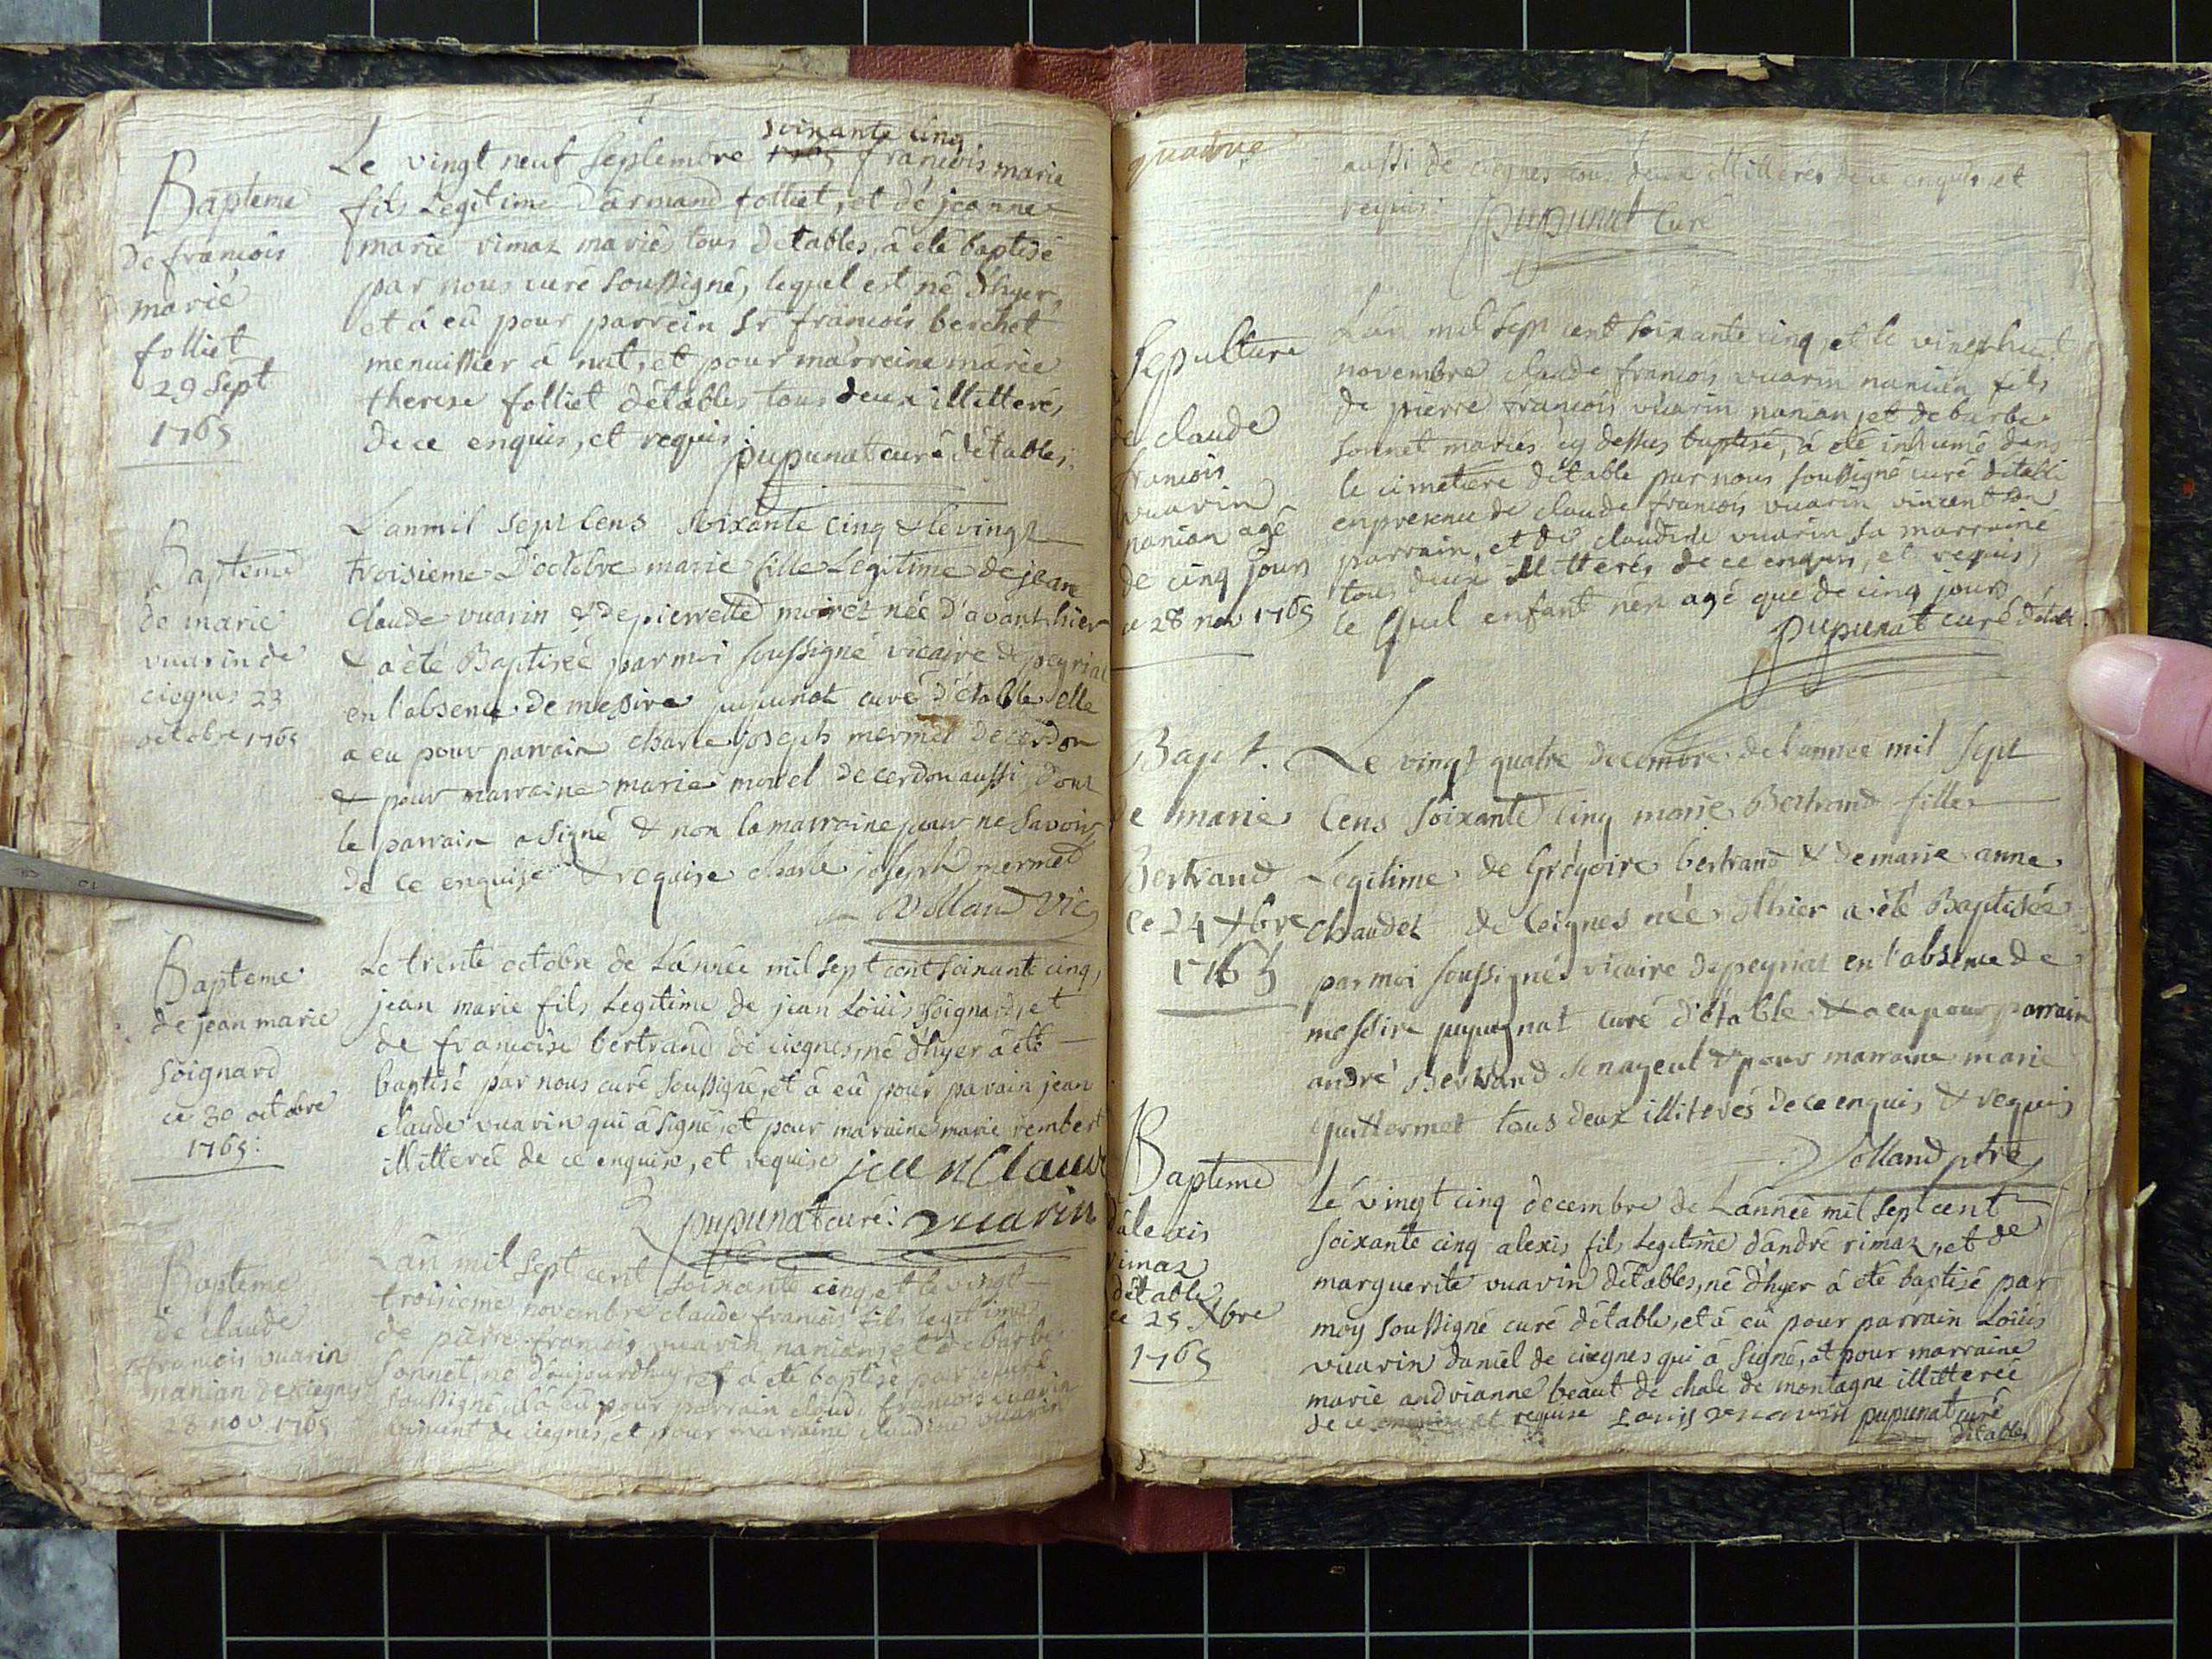 Bapteme
de francois
marie
folliet
29 Sept
1765
soixante cinq
Le vingt neuf Septembre 1765 francois marie
fils Legitime d'armand folliet, et de jeanne
marie rimaz mariés tous detables, à eté baptisé
par nous curé Soussigné, lequel est né d'hyer,
et à eû pour parrein Sr. francois berchet
menuissier à nat, et pour marreine marie
therese folliet détables tous deux illitterés
de ce enquis, et requis.
pupunat curé détables.
Bapteme
de marie
vuarin de
ciegnes 23
octobre 1765
L'an mil sept Cens soixante cinq & le vingt
troisieme d'octobre marie fille Legitime de jean
claude vuarin & de pierrette moirez née d'avanthier
& a été Baptisée par moi soussigné vicaire de peyriat
en l'absence de messire pupunat curé d'étable elle
a eu pour parrain charle joseph mermet de cerdon
& pour marraine marie morel de cerdon aussi dont
le parrain a signé & non la marraine pour ne savoir
de ce enquise & requise charle joseph mermet
Volland Vic
Bapteme
de jean marie
Soignard
ce 30 octobre
1765.
Le trente octobre de L'année mil sept cent soixante cinq,
jean marie fils Legitime de jean Loüis Soignard, et
de francoise bertrand de ciegnes, né d'hyer à eté
baptisé par nous curé Soussigné, et à eû pour parain jean
claude vuarin qui à signé, et pour maraine marie rembert
illitterée de ce enquise, et requise jean Claude
pupunat curé. vuarin
Bapteme
de claude
francois vuarin
nanian de ciegnes
23 nov. 1765
L'an mil sept cent soixante cinq, et le vingt
troisieme novembre claude francois fils legitime
de pierre francois vuarin nanian, et de barbe
Sonnet, né d'aujourdhuy et à eté baptisé par le curé
soussigné, il à eû pour parrain claud. francois vuarin
vincent de ciegnes, et pour marraine claudine vuarin
aussi de ciegnes tous deux illitterés de ce enquis, et
requis. pupunat Curé
Sepulture
de claude
francois
vuarin
nanian agé
de cinq jours
ce 28 nov 1765
L'an mil Sept cent soixante cinq, et le vingt huit
novembre claude francois vuarin nanian fils
de pierre francois vuarin nanian, et de barbe
Sonnet mariés cy dessus baptisé, à eté inhumé dans
le cimetiere détable par nous soussigné curé détable
en presence de claude francois vuarin vincent son
parrain, et de claudine vuarin sa marraine
tous deux illitterés de ce enquis, et requis,
le quel enfant n'en agé que de cinq jours
pupunat curé d'étable.
Bapt.
de marie
Bertrand
ce 24 Xbre
1765
Le vingt quatre decembre de l'annee mil sept
Cens soixante cinq marie Bertrand fille
Légitime de Grégoire bertrand & de marie anne
chaudet de Ceignes née d'hier a été Baptisée
par moi soussigné vicaire de peyriat en l'absence de
messire pupugnat curé d'étable & a eu pour parrain
andré Bertrand son ayeul & pour marraine marie
guillermet tous deux illiterés de ce enquis & requis
Volland ptre
Bapteme
d'alexis
rimaz
détable
ce 25 Xbre
1765
Le vingt cinq decembre de L'année mil sept cent
soixante cinq alexis fils Legitime d'andre rimaz, et de
marguerite vuarin détables, né d'hyer à eté baptisé par
moy soussigné curé détable, et à eu pour parrain Loüis
vuarin daniel de ciegnes qui à signé, et pour marraine
marie andrianne beaut de chale de montagne illitterée
de ce enquise et requise Louis vuarin pupunat curé
détables